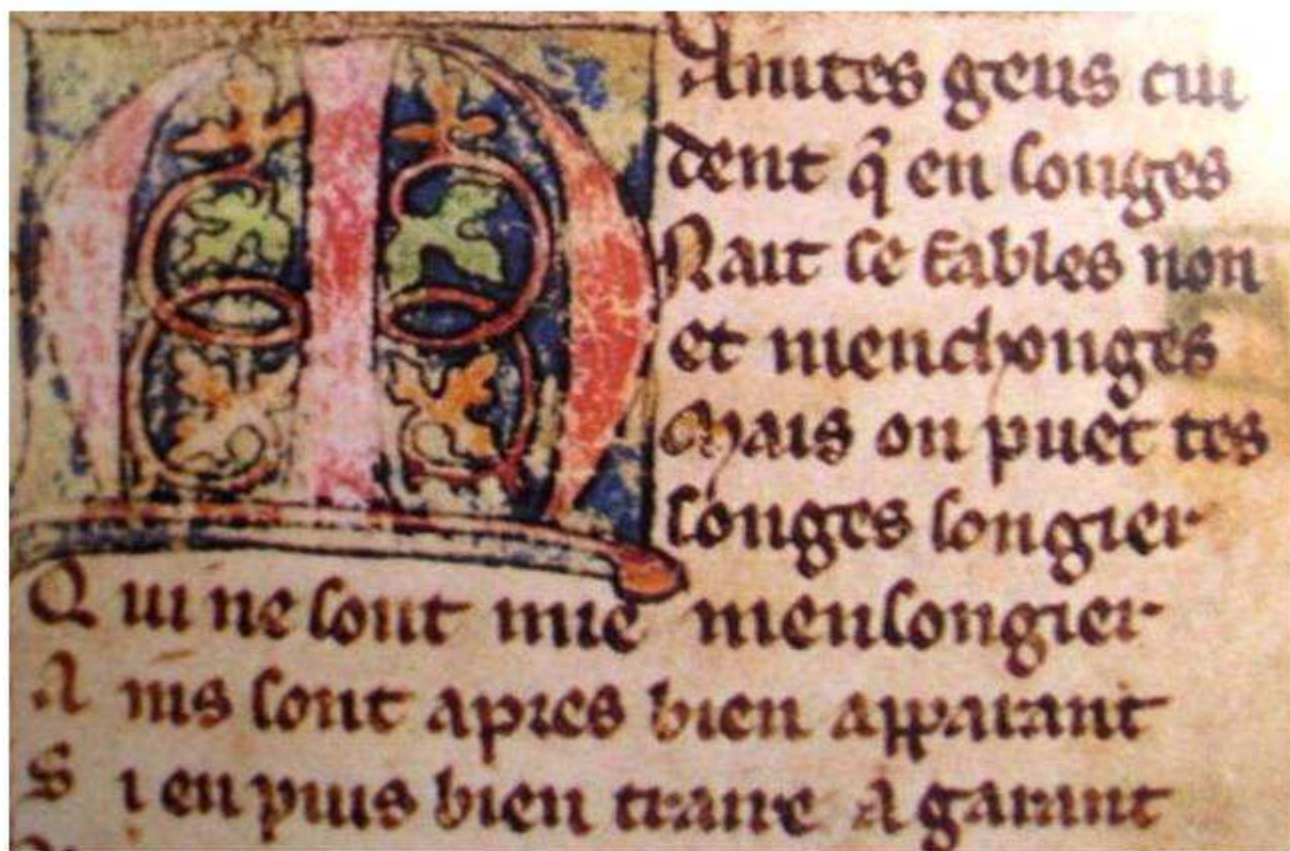 MAintes gens cui
dent q̄ en songes
Nait se fables non
et menchonges
Mais on puet tes
songes songier
Qui ne sont mie mensongier
Ains sont apres bien apparant
Si en puis bien traire a garant